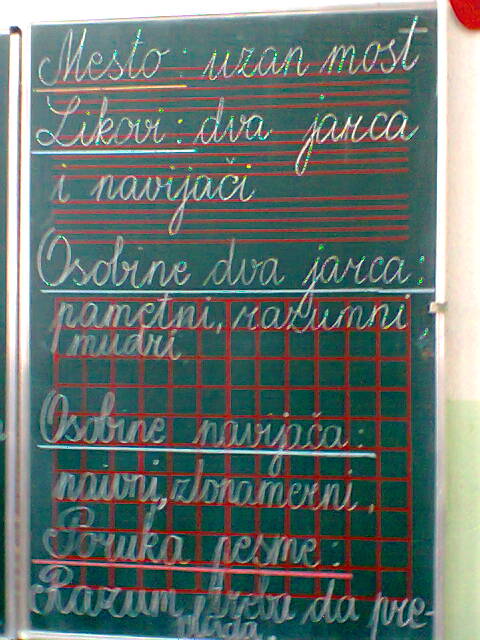 Mesto: uzan most
Likovi: dva jarca
i navijači
Osobine dva jarca:
pametni, razumni
mudri
Osobine navijača:
naivni, zlonamerni.
Poruka pesme:
Razum treba da pre-
vlada.